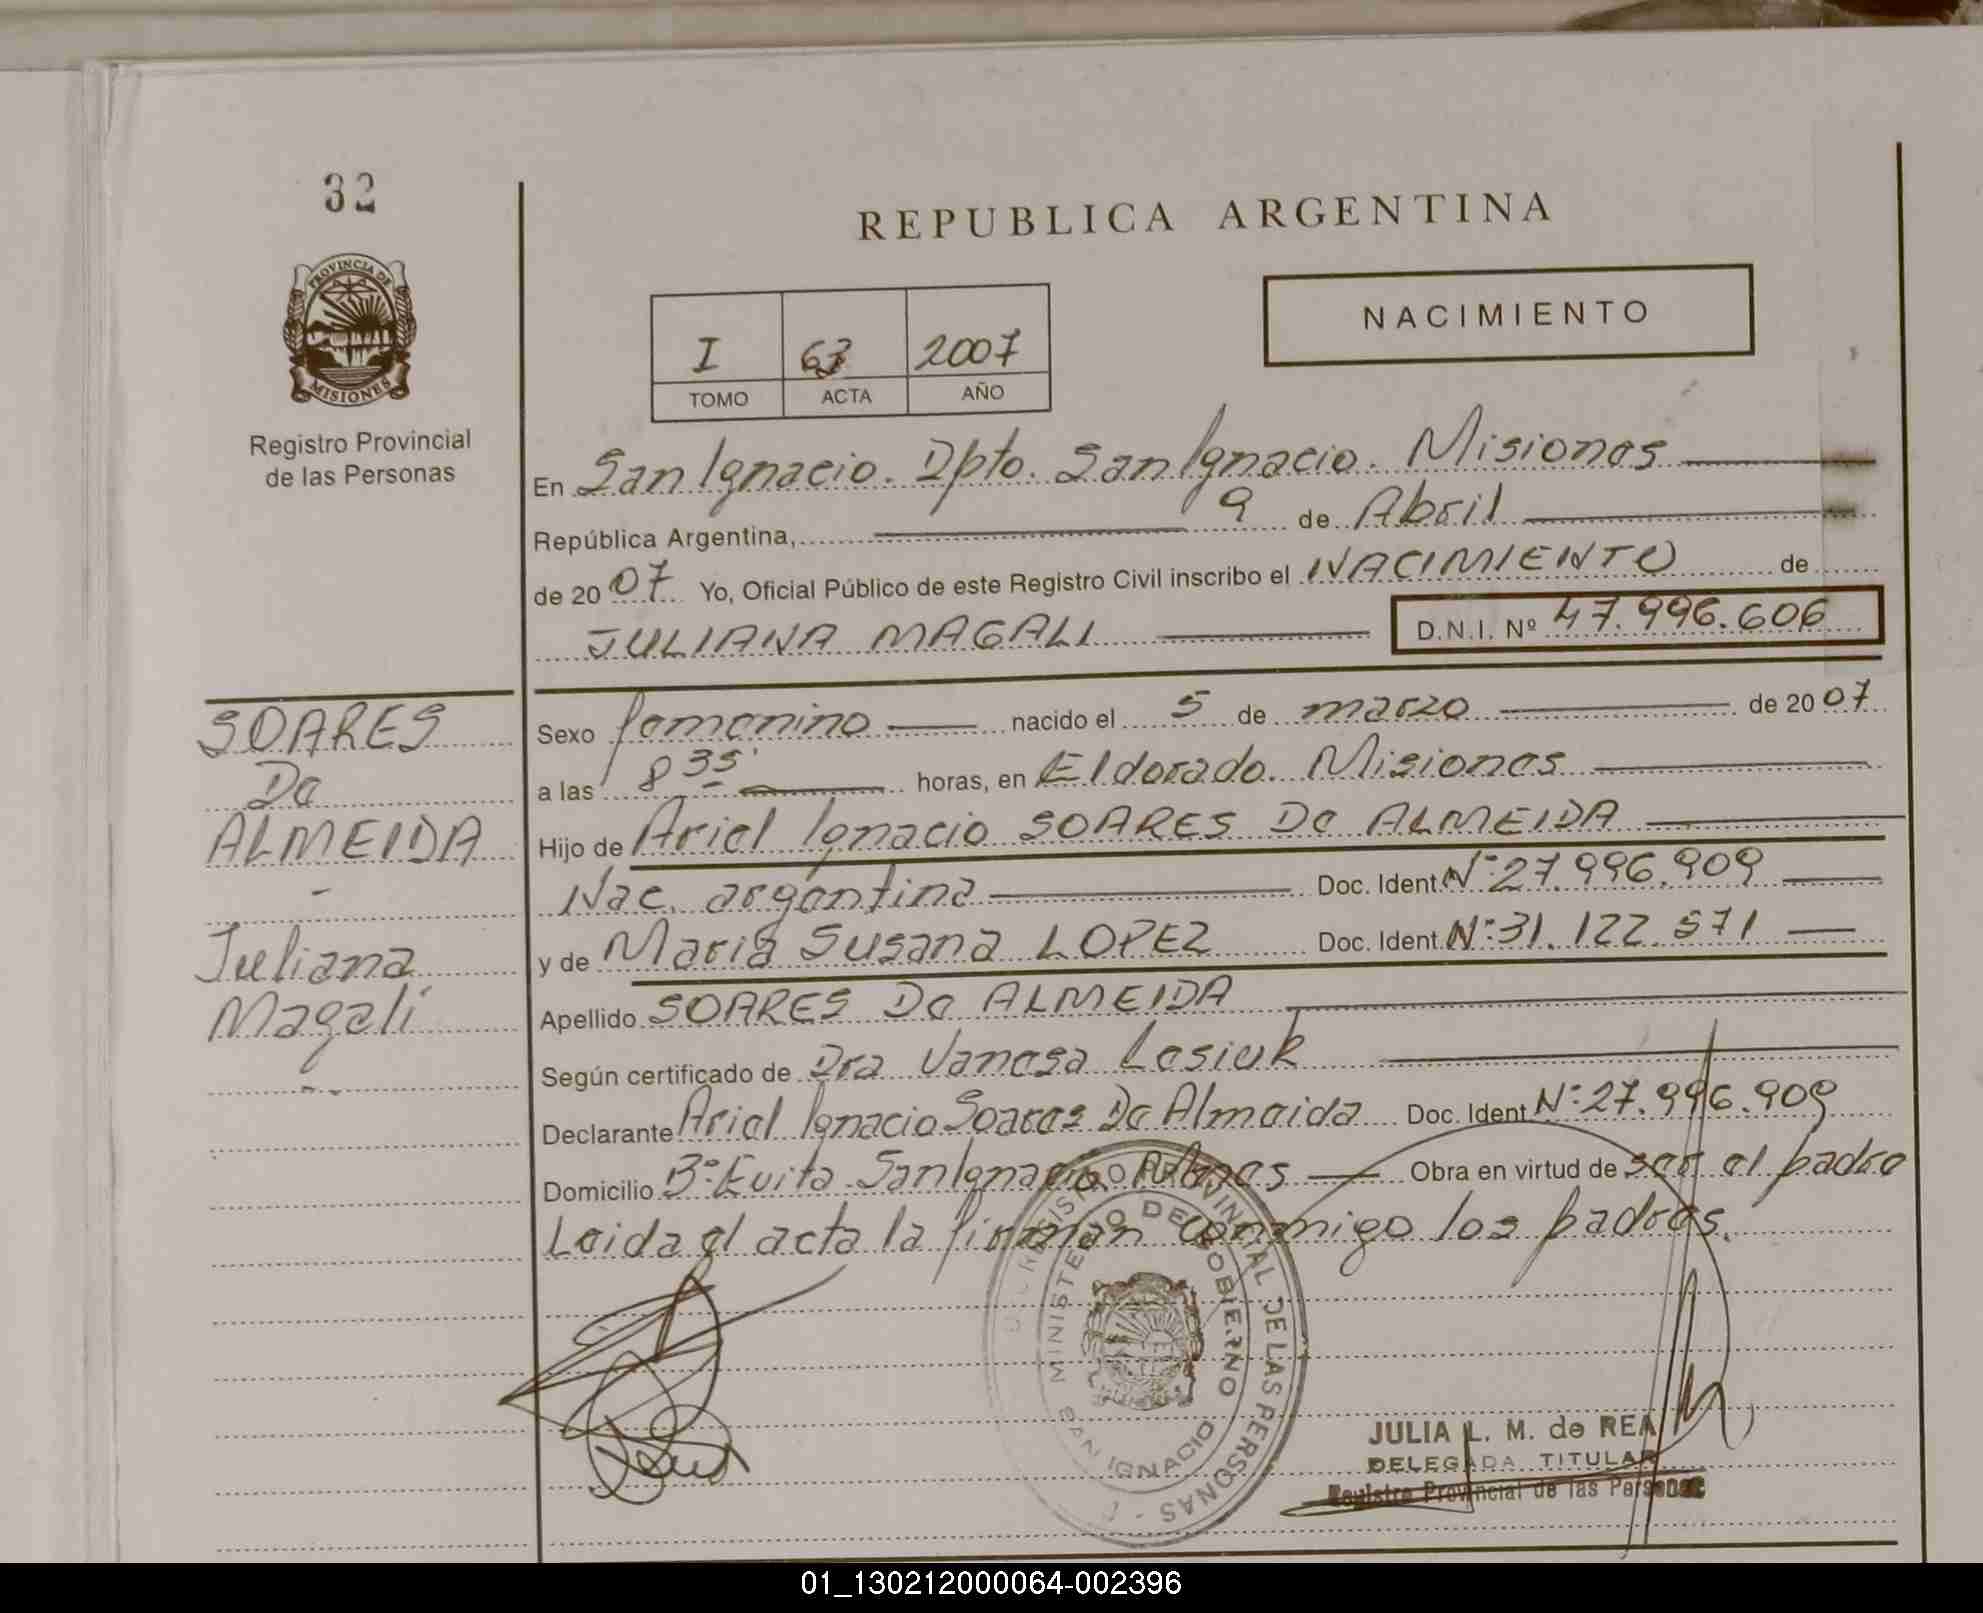 32
PROVINCIA DE
MISIONES
Registro Provincial
de las Personas
REPUBLICA ARGENTINA
I 63 2007
TOMO ACTA AÑO
NACIMIENTO
En San Ignacio. Dpto. San Ignacio. Misiones
República Argentina, 9 de Abril
de 2007 Yo, Oficial Público de este Registro Civil inscribo el NACIMIENTO de
JULIANA MAGALI D.N.I. Nº 47.996.606
SOARES
De
ALMEIDA
-
Juliana
Magali
Sexo femenino nacido el 5 de marzo de 2007
a las 8 35' horas, en Eldorado. Misiones
Hijo de Ariel Ignacio SOARES De ALMEIDA
Nac. argentina Doc. Ident. Nº 27.996.909
y de Maria Susana LOPEZ Doc. Ident. Nº 31.122.571
Apellido SOARES De ALMEIDA
Según certificado de Dra Vanesa Lesiuk
Declarante Ariel Ignacio Soares De Almeida Doc. Ident. Nº 27.996.909
Domicilio Bº Evita San Ignacio Mnes Obra en virtud de ser el padre
Leida el acta la firman conmigo los padres.
REGISTRO PROVINCIAL DE LAS PERSONAS
MINISTERIO DE GOBIERNO
SAN IGNACIO
JULIA L. M. de REA
DELEGADA TITULAR
Registro Provincial de las Personas
01_130212000064-002396